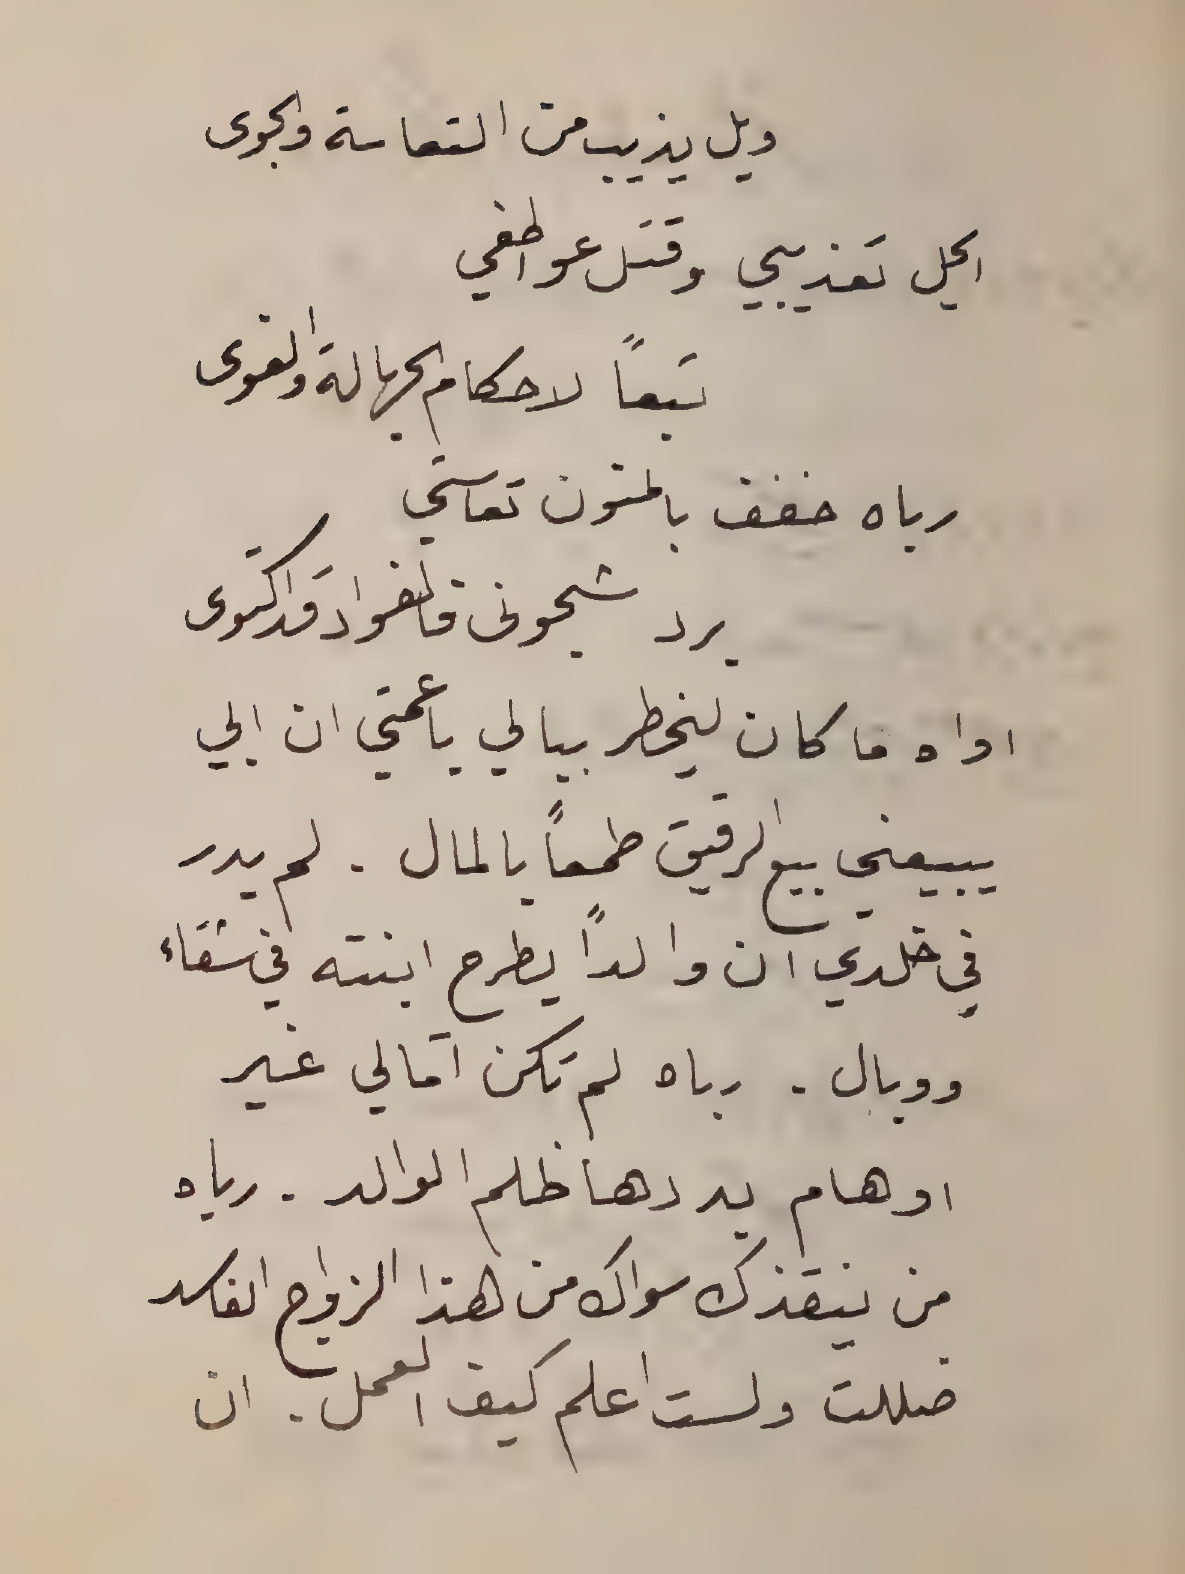 ويل يذيب من التعاسة والجوى
ايحل تعذيبي وقتل عواطفي
تبعاً لاحكام الجهالة والغوى
رباه خفف بالمنون تعاستي
برد شجوني فالفواد قد اكتوى
اواه ما كان ليخطر ببالي يا عمتي ان ابي
يبيعني بيع الرقيق طمعاً بالمال . لم يدر
في خلدي ان والداً يطرح ابنته في شقاء
ووبال . رباه لم تكن آمالي غير
اوهام يددها ظلم الوالد . رباه
من ينقذك سواك من هذا الزواج الفاسد
ضللت ولست اعلم كيف العمل . ان